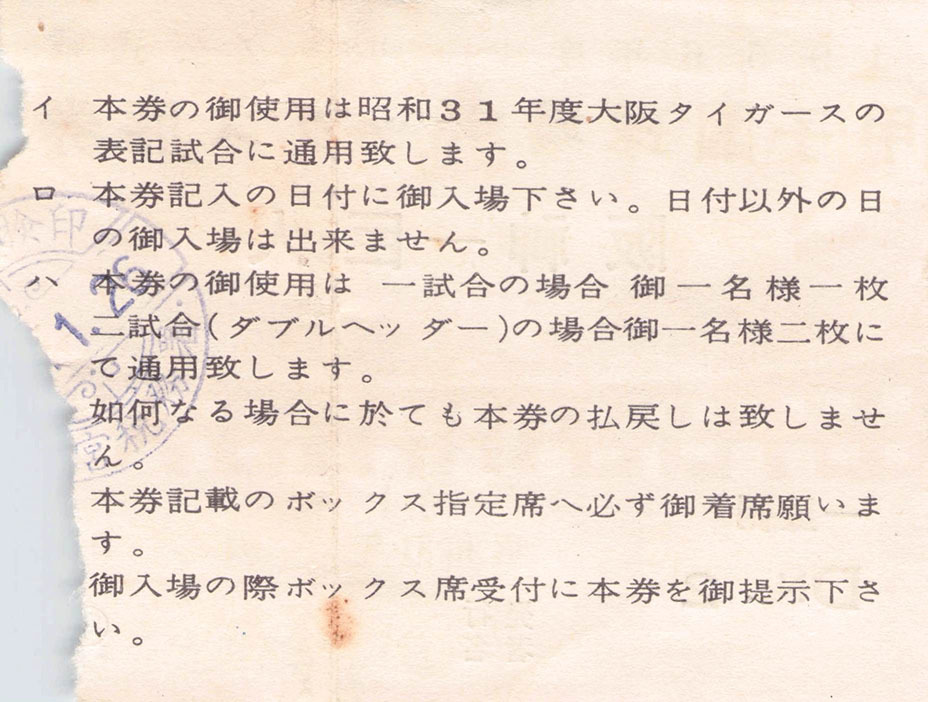 イ 本券の御使用は昭和31年度大阪タイガースの
表記試合に通用致します。
ロ 本券記入の日付に御入場下さい。日付以外の日
の御入場は出来ません。
ハ 本券の御使用は 一試合の場合 御一名様一枚
二試合(ダブルヘッダー)の場合御一名様二枚に
て通用致します。
如何なる場合に於ても本券の払戻しは致しませ
ん。
本券記載のボックス指定席へ必ず御着席願いま
す。
御入場の際ボックス席受付に本券を御提示下さ
い。
検印
1.26